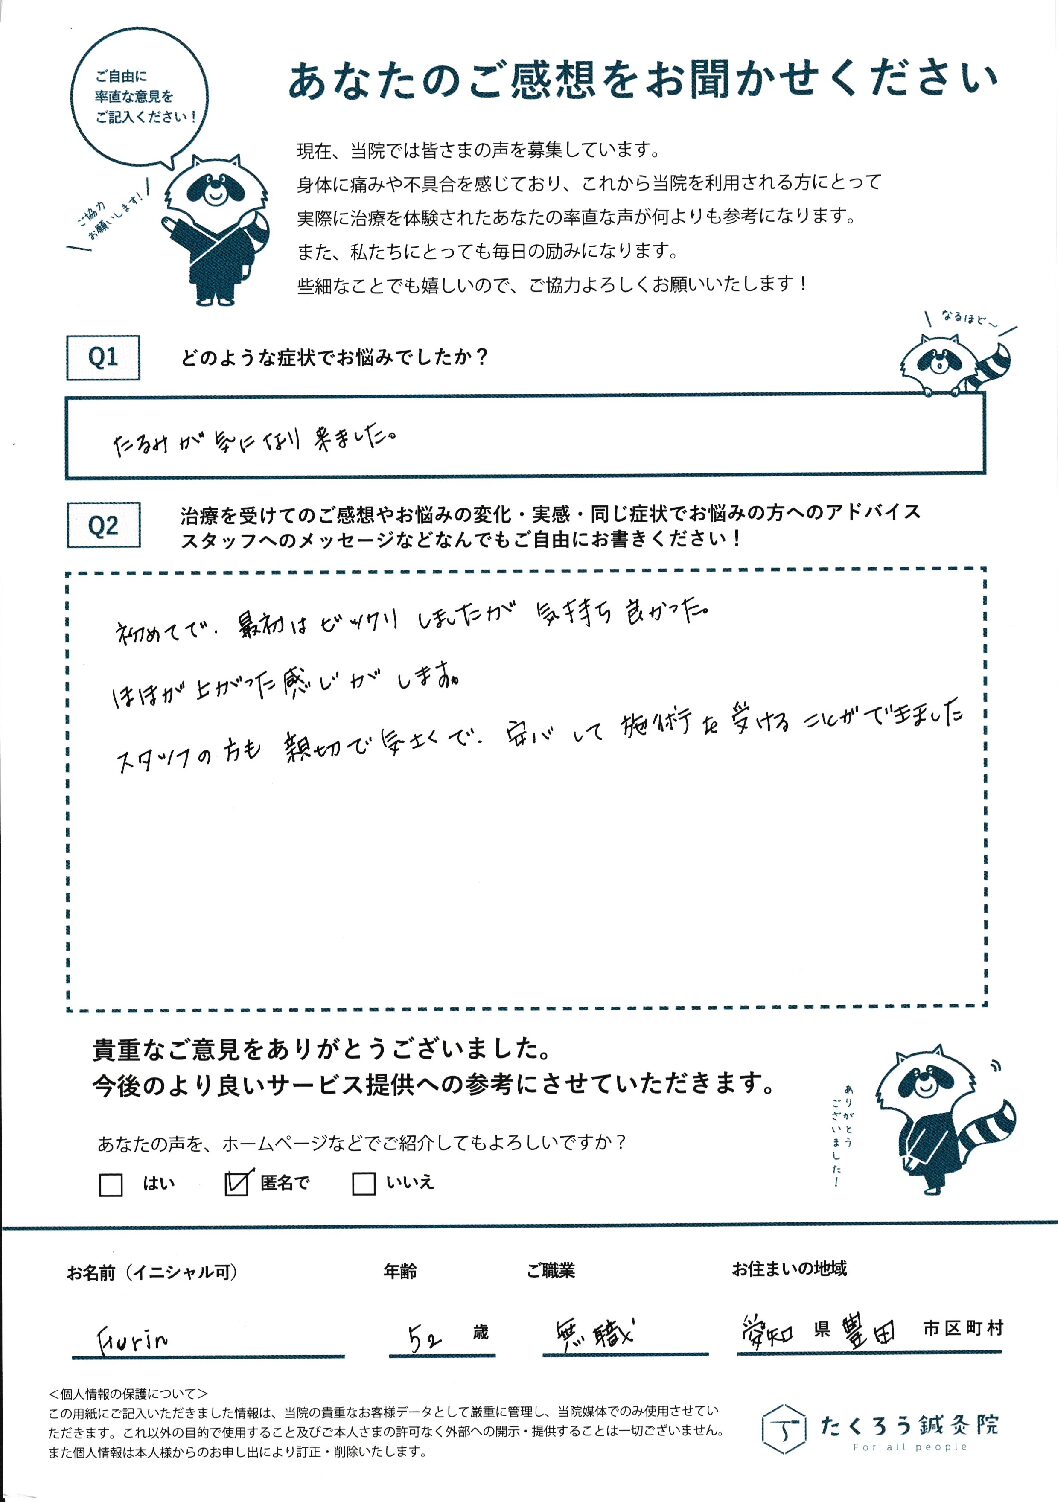 ご自由に
率直な意見を
ご記入ください！
あなたのご感想をお聞かせください
ご協力
お願いします！
現在、当院では皆さまの声を募集しています。
身体に痛みや不具合を感じており、これから当院を利用される方にとって
実際に治療を体験されたあなたの率直な声が何よりも参考になります。
また、私たちにとっても毎日の励みになります。
些細なことでも嬉しいので、ご協力よろしくお願いいたします！
なるほど〜
Q1 どのような症状でお悩みでしたか？
たるみが気になり来ました。
Q2 治療を受けてのご感想やお悩みの変化・実感・同じ症状でお悩みの方へのアドバイス
スタッフへのメッセージなどなんでもご自由にお書きください！
初めてで、最初はビックリしましたが気持ち良かった。
ほほが上がった感じがします。
スタッフの方も親切で気さくで、安心して施術を受けることができました
貴重なご意見をありがとうございました。
今後のより良いサービス提供への参考にさせていただきます。
ありがとう
ございました！
あなたの声を、ホームページなどでご紹介してもよろしいですか？
はい 匿名で いいえ
お名前（イニシャル可） 年齢 ご職業 お住まいの地域
52 歳 無職 愛知 県 豊田 市区町村
＜個人情報の保護について＞
この用紙にご記入いただきました情報は、当院の貴重なお客様データとして厳重に管理し、当院媒体でのみ使用させてい
ただきます。これ以外の目的で使用すること及びご本人さまの許可なく外部への開示・提供することは一切ございません。
また個人情報は本人様からのお申し出により訂正・削除いたします。
たくろう鍼灸院
For all people